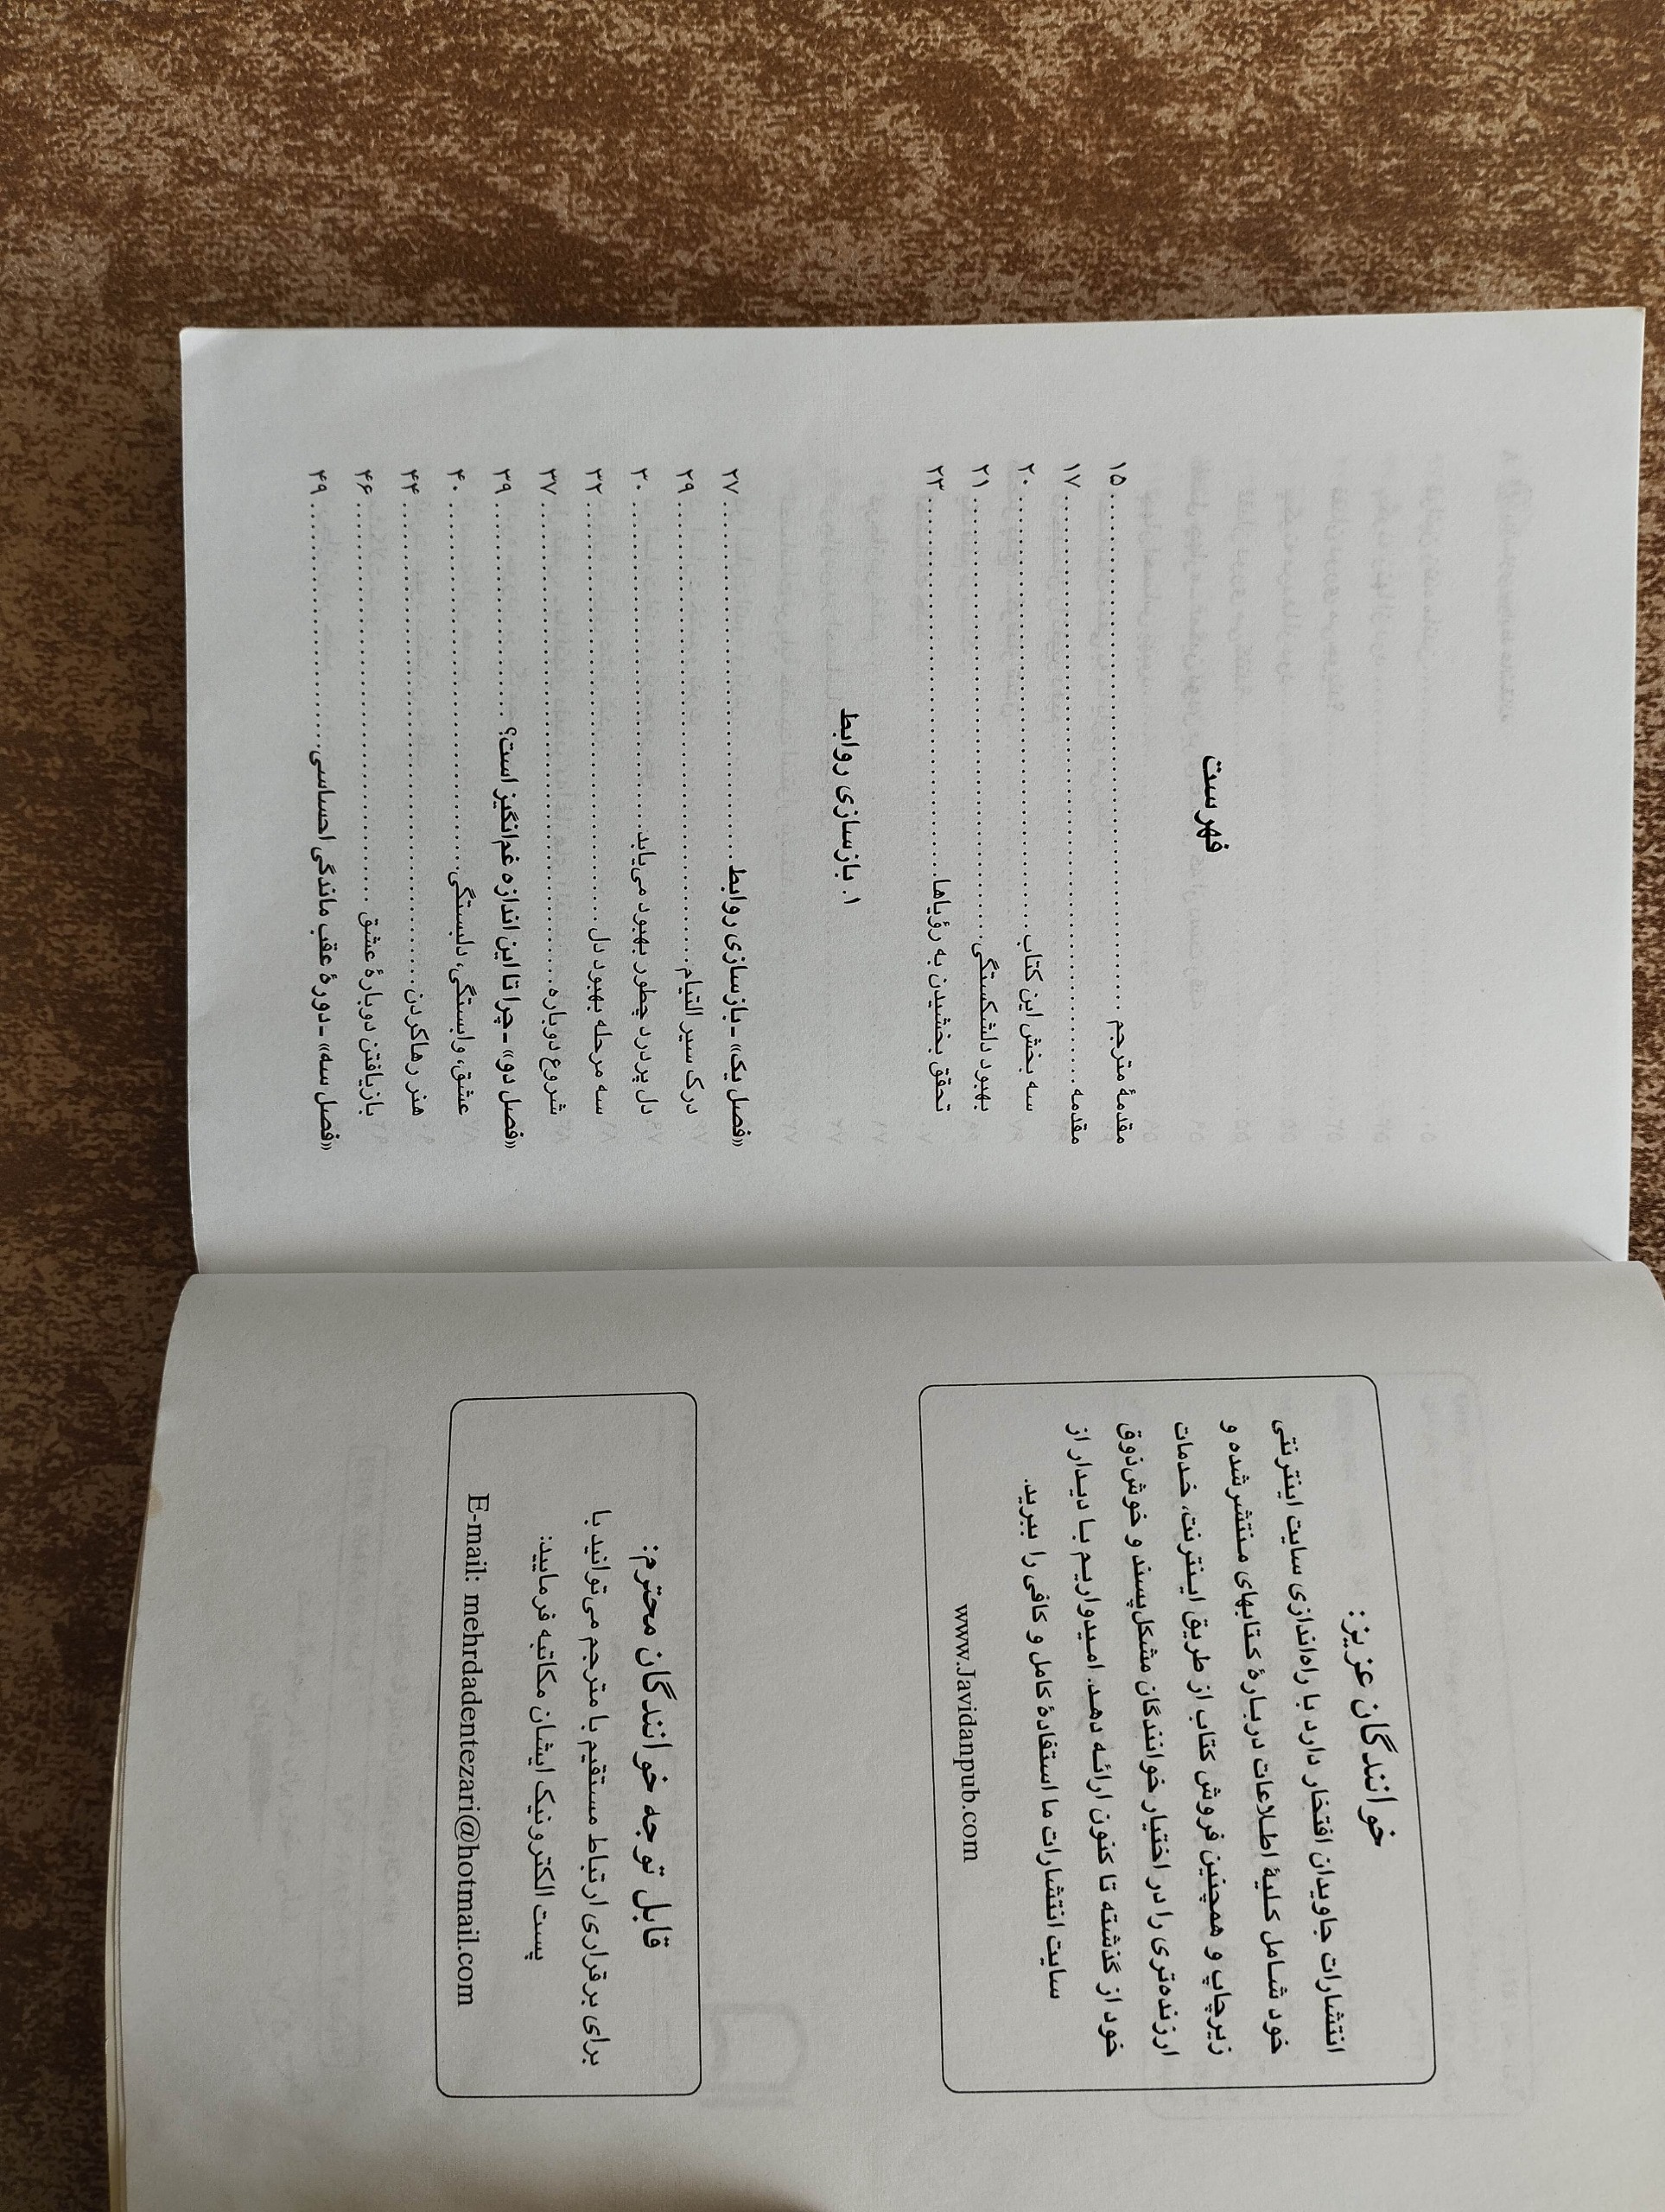 خوانندگان عزیز:
انتشارات جاویدان افتخار دارد با راه‌اندازی سایت اینترنتی
خود شامل کلیهٔ اطلاعات دربارهٔ کتابهای منتشر شده و
زیرچاپ و همچنین فروش کتاب از طریق اینترنت، خدمات
ارزنده‌تری را در اختیار خوانندگان مشکل‌پسند و خوش‌ذوق
خود از گذشته تا کنون ارائه دهد. امیدواریم با دیدار از
سایت انتشارات ما استفادهٔ کامل و کافی را ببرید.
www.Javidanpub.com
قابل توجه خوانندگان محترم:
برای برقراری ارتباط مستقیم با مترجم می‌توانید با
پست الکترونیک ایشان مکاتبه فرمایید:
E-mail: mehrdadentezari@hotmail.com
فهرست
مقدمهٔ مترجم ........ ۱۵
مقدمه ........ ۱۷
سه بخش این کتاب ........ ۲۰
بهبود دلشکستگی ........ ۲۱
تحقق بخشیدن به رؤیاها ........ ۲۳
۱. بازسازی روابط
«فصل یک» ـ بازسازی روابط ........ ۲۷
درک سیر التیام ........ ۲۹
دل پردرد چطور بهبود می‌یابد ........ ۳۰
سه مرحله بهبود دل ........ ۳۲
شروع دوباره ........ ۳۷
«فصل دو» ـ چرا تا این اندازه غم‌انگیز است؟ ........ ۳۹
عشق، وابستگی، دلبستگی ........ ۴۰
هنر رها کردن ........ ۴۴
بازیافتن دوبارهٔ عشق ........ ۴۶
«فصل سه» ـ دورهٔ عقب ماندگی احساسی ........ ۴۹